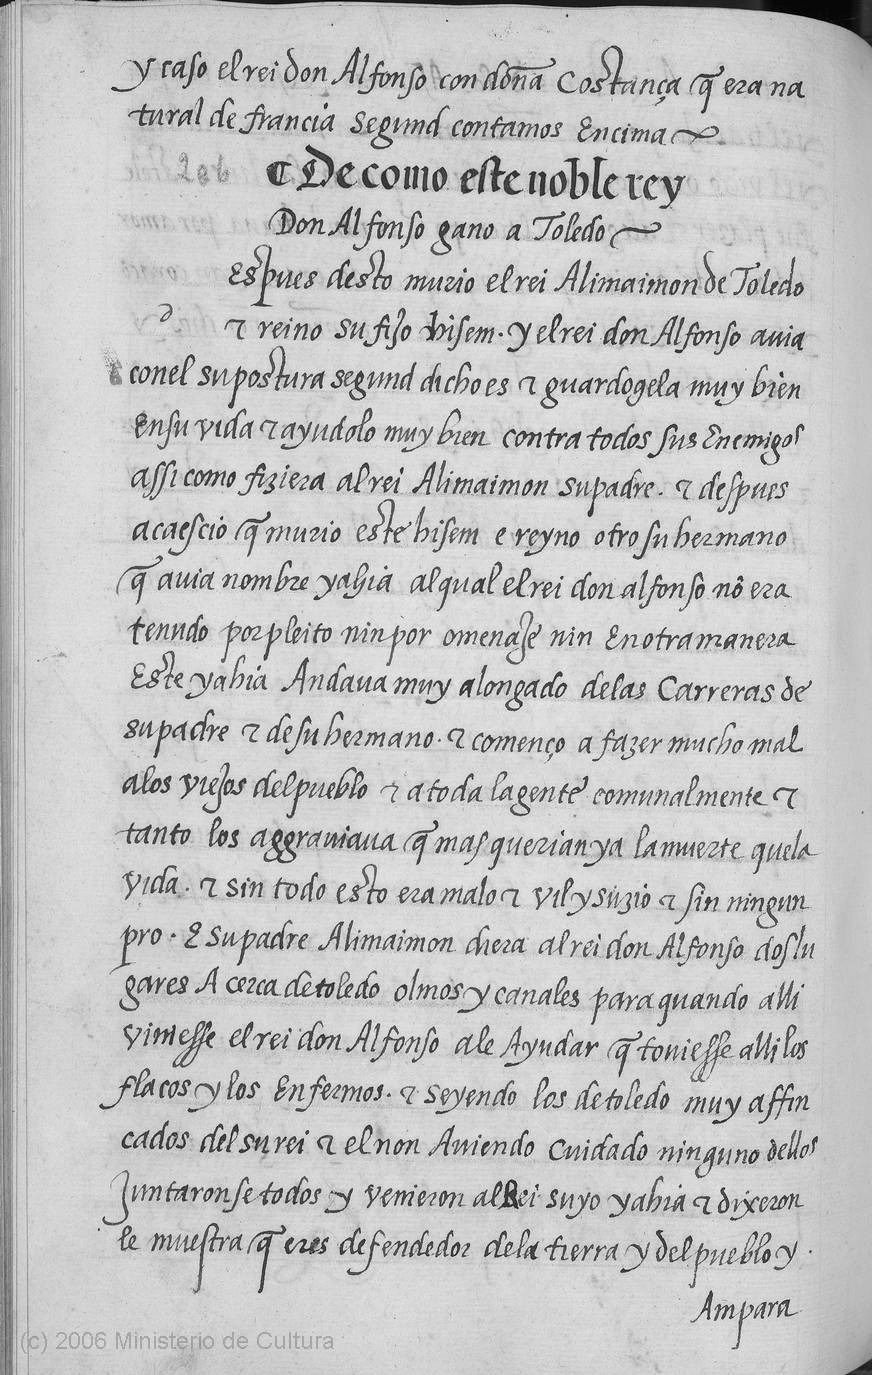 y caso el rei don Alfonso con doña Costança q̃ era na
tural de francia segund contamos Encima
¶ De como este noble rey
Don Alfonso gano a Toledo
d
Espues desto murio el rei Alimaimon de Toledo
⁊ reino su fijo hisem. y el rei don Alfonso avia
con el su postura segund dicho es ⁊ guardogela muy bien
En su vida ⁊ ayudolo muy bien contra todos sus Enemigos
assi como fiziera al rei Alimaimon su padre. ⁊ despues
acaescio q̃ murio este hisem e reyno otro su hermano
q̃ avia nombre yahia al qual el rei don alfonso nõ era
tenudo por pleito nin por omenaje nin En otra manera
Este yahia Andaua muy alongado de las Carreras de
su padre ⁊ de su hermano. ⁊ començo a fazer mucho mal
a los viejos del pueblo ⁊ a toda la gente comunalmente ⁊
tanto los aggrauiaua q̃ mas querian ya la muerte que la
vida. ⁊ sin todo esto era malo ⁊ vil y suzio ⁊ sin ningun
pro. E su padre Alimaimon diera al rei don Alfonso dos lu
gares A cerca de toledo olmos y canales para quando alli
viniesse el rei don Alfonso a le Ayudar q̃ touiesse alli los
flacos y los Enfermos. ⁊ seyendo los de toledo muy affin
cados del su rei ⁊ el non Auiendo Cuidado ninguno dellos
Juntaronse todos y venieron al Rei suyo yahia ⁊ dixeron
le muestra q̃ eres defendedor de la tierra y del pueblo y
Ampara
(c) 2006 Ministerio de Cultura